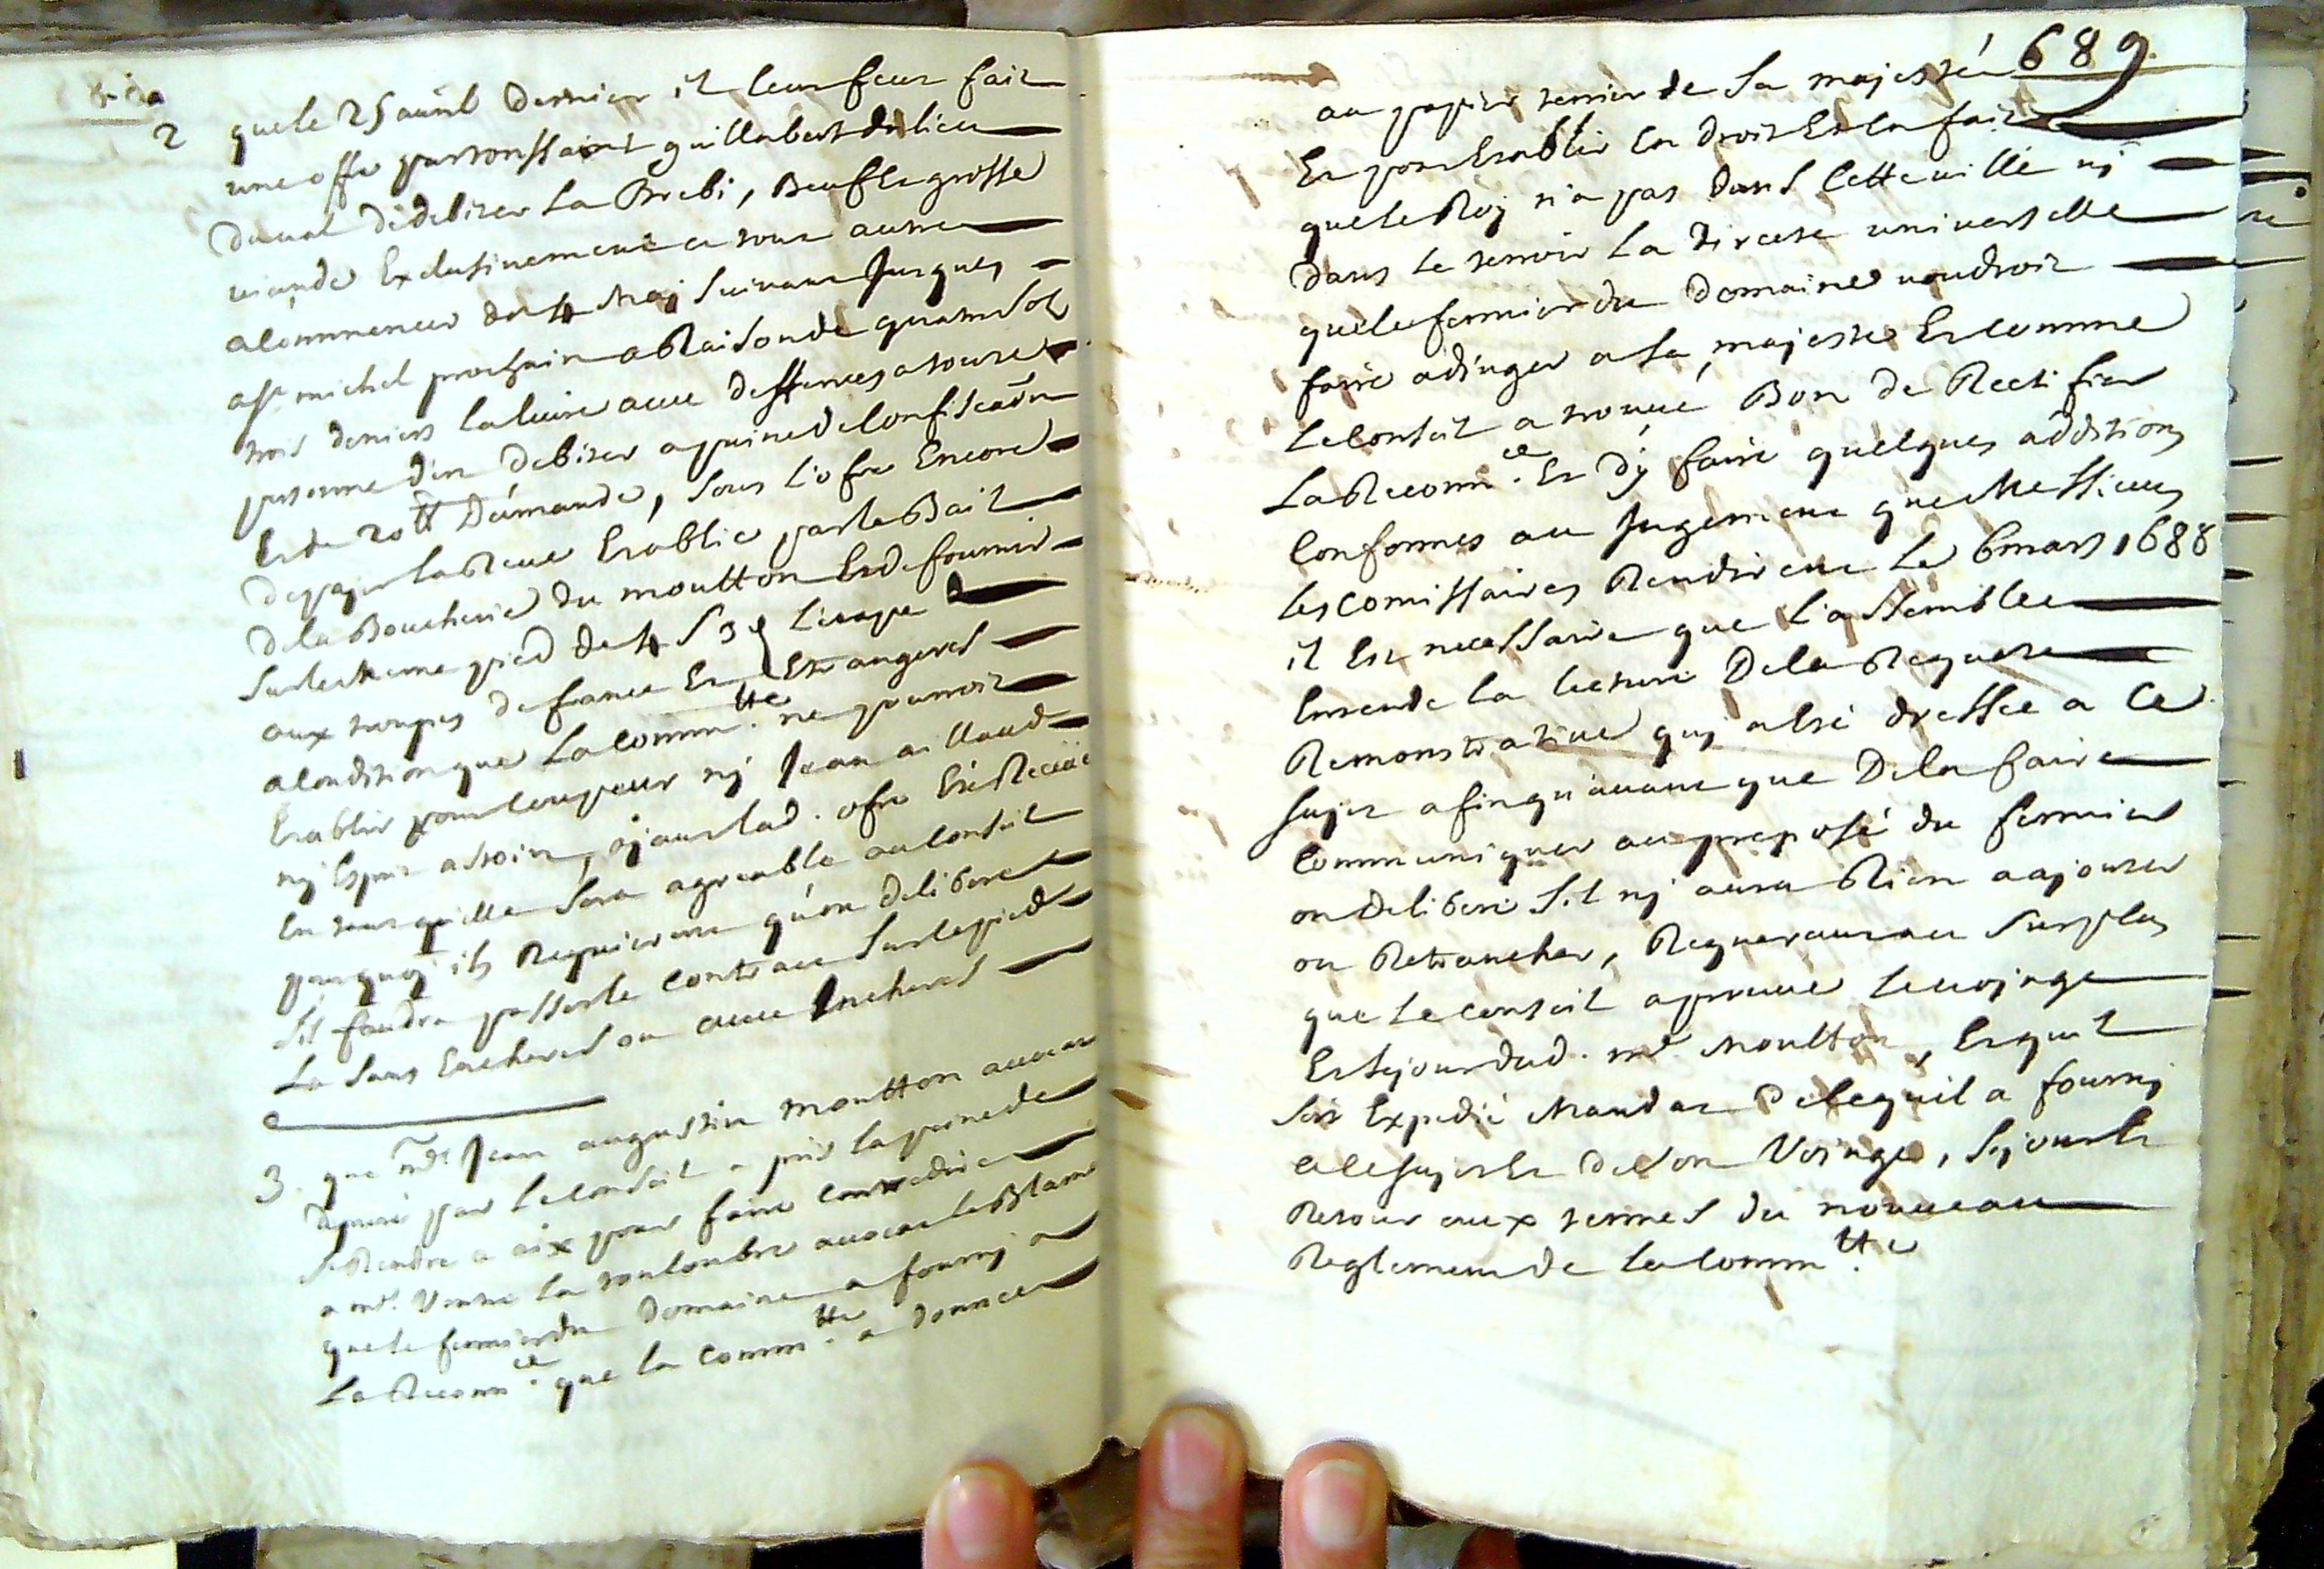 2 que le 25 auril dernier il leur feut fait
une offre par toussaint guillabert du lieu
du ual de debiter la Brebi, Beuf Et grosse
uiande Exclusiuement a tout autre
a commencer du 4 May suiuant Jusques
a st michel prochain a Raison de quatre sols
trois deniers la liure auec deffences a toute
personne d'en debiter a peine de Confiscaon
Et de 20 tt D'amande, sous l'ofre Encore
de payer la Reue Establie par le Bail
de la Boucherie du moutton Et de fournir
sur le meme pied de 4 s 3 d l'etape
aux troupes de france Et Estrangeres
a Condition que la Comm.tté ne pourroit
Establir pour Coupeur ny Jean aillaud
ny Esprit assoin, ayant lad. ofre Eté Receüe
En tant qu'elle sera agreable au Conseil
parquoy ils Requierent qu'on delibere
s'il faudra passer le Contract sur le pied
La sans Encheres ou auec Encheres
3. que mr. Jean augustin moutton auocat
deputé par le Conseil a pris la peine de
se Rendre a aix pour faire Contredire
a mr. Veutre la touloubre auocat le Blame
que le fermier du Domaine a fourny a
La Reconn.ce que la Comm.tté a donnee
689
au papier terrier de sa majesté
Et pour Establir En droit Et En fait
que le Roy n'a pas dans Cette uille ny
dans le terroir La directe uniuerselle
que le fermier du Domaine uoudroit
faire adiuger a sa majesté Et comme
Le Conseil a trouué Bon de Rectifier
La Reconn.ce Et d'y faire quelques additions
Conformes au Jugement que Messieurs
les Comissaires Rendirent Le 6 mars 1688
il Est necessaire que l'assemblee
Entende la lecture De la Requete
Remonstratiue quy a Esté dressee a Ce
sujet afin qu'auant que De la faire
Communiquer au preposé du fermier
on delibere s'il ny aura Rien a ajouter
ou Retrancher, Requerant au surplus
que le Conseil aprouue le uoyage
Et sejour dud. mr. Moutton, Et qu'il
soit Expedié Mandat De Ce qu'il a fourny
a Ce sujet Et de son Voyage, sejour Et
Retour aux termes du nouueau
Reglement de la Comm.tté